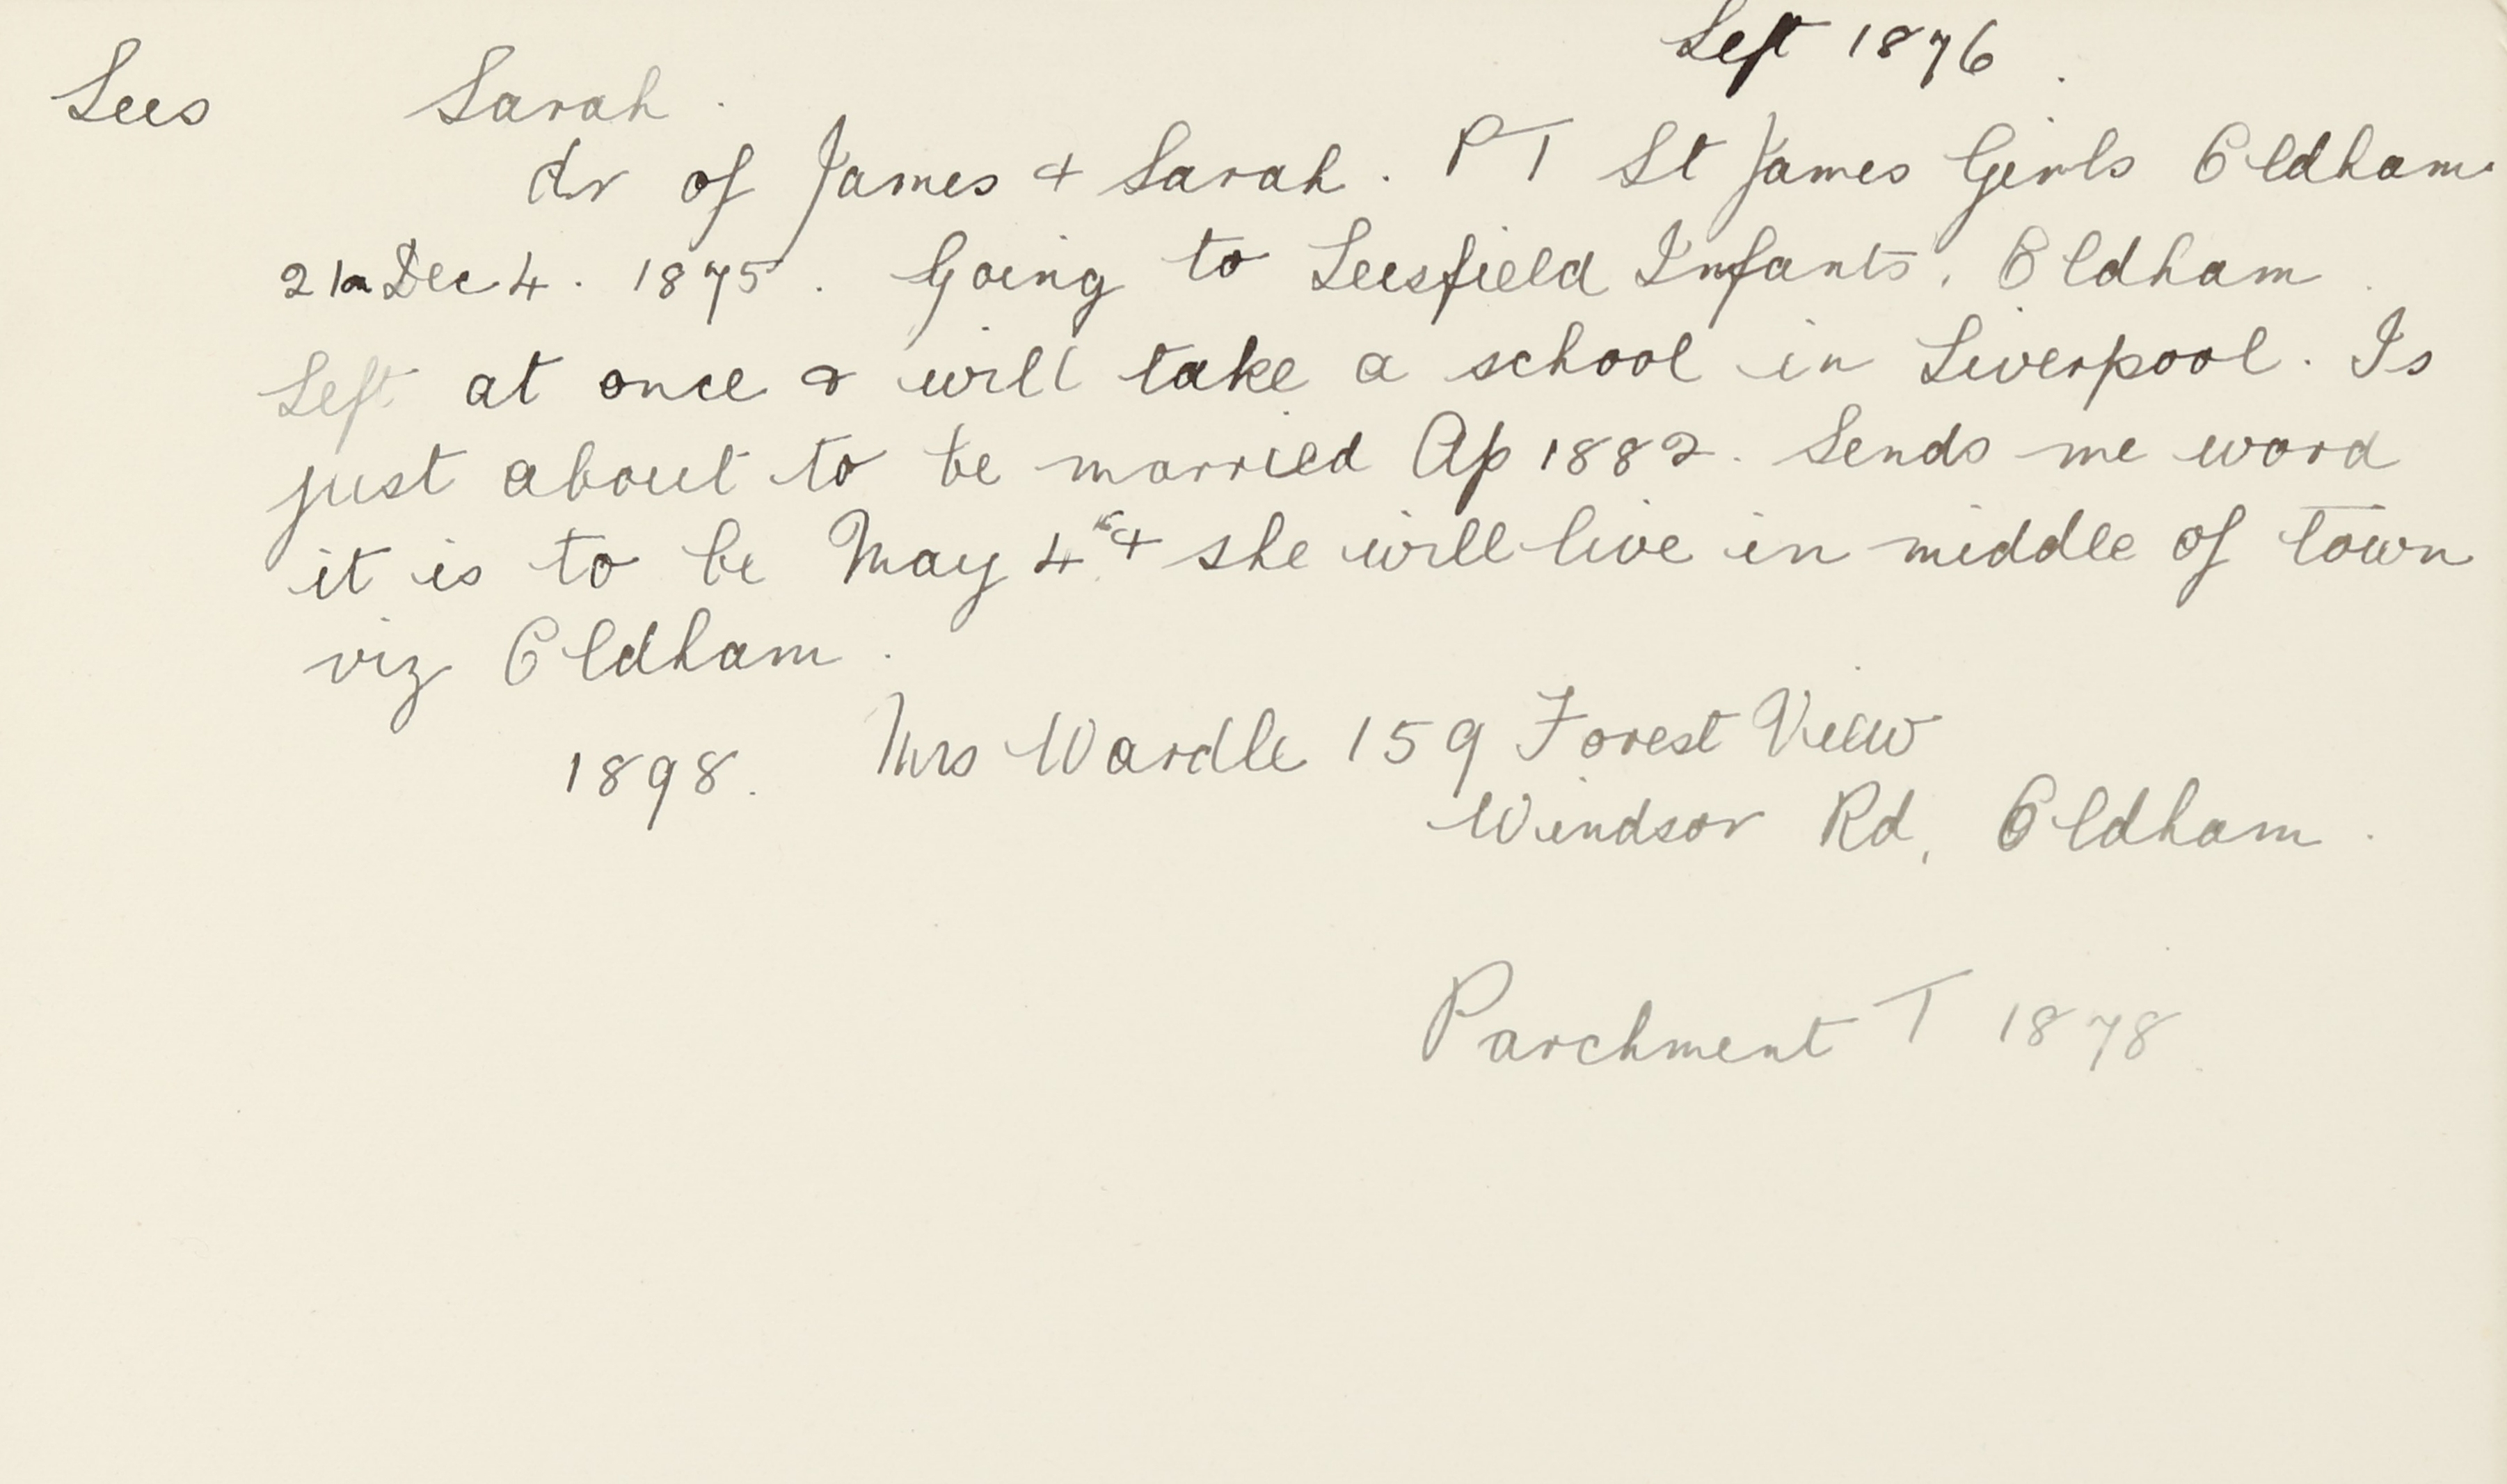 Left 1876.
Lees Sarah.
dr of James & Sarah. PT St James Girls Oldham
21 Dec 4. 1875. Going to Leesfield Infants, Oldham.
Left at once & will take a school in Liverpool. Is
just about to be married Ap 1882. Sends me word
it is to be May 4th & she will live in middle of town
viz Oldham.
1898. Mrs Wardle 159 Forest View
Windsor Rd, Oldham.
Parchment T 1878.